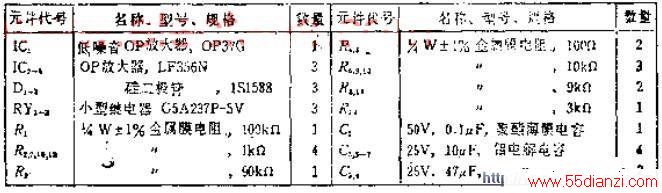 元件代号 名称、型号、规格 数量 元件代号 名称、型号、规格 数量
IC₁ 低噪音OP放大器, OP37G 1 ¼W±1%金属膜电阻, 100Ω 2
IC₂₋₄ OP放大器, LF356N 3 〃 10kΩ 3
D₁₋₃ 硅二极管, 1S1588 3 〃 9kΩ 2
RY₁₋₃ 小型继电器 G5A237P-5V 3 〃 3kΩ 1
R₁ ¼W±1%金属膜电阻, 100kΩ 1 50V, 0.1μF, 聚酯薄膜电容 1
〃 1kΩ 4 25V, 10μF, 铝电解电容 4
〃 90kΩ 1 25V, 47μF, 〃
www.55dianzi.com